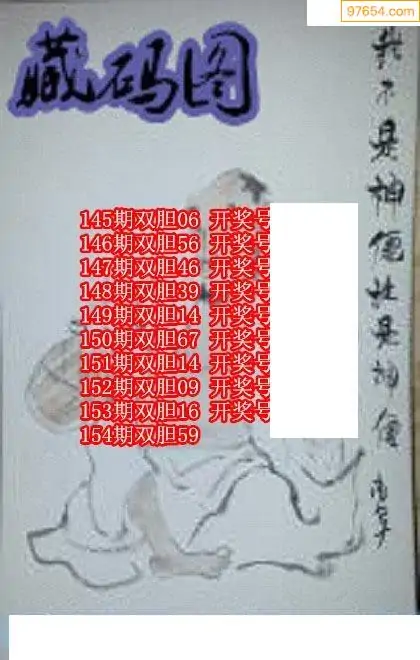 97654.com
藏码图
145期双胆06 开奖号
146期双胆56 开奖号
147期双胆46 开奖号
148期双胆39 开奖号
149期双胆14 开奖号
150期双胆67 开奖号
151期双胆14 开奖号
152期双胆09 开奖号
153期双胆16 开奖号
154期双胆59
不是神 是神